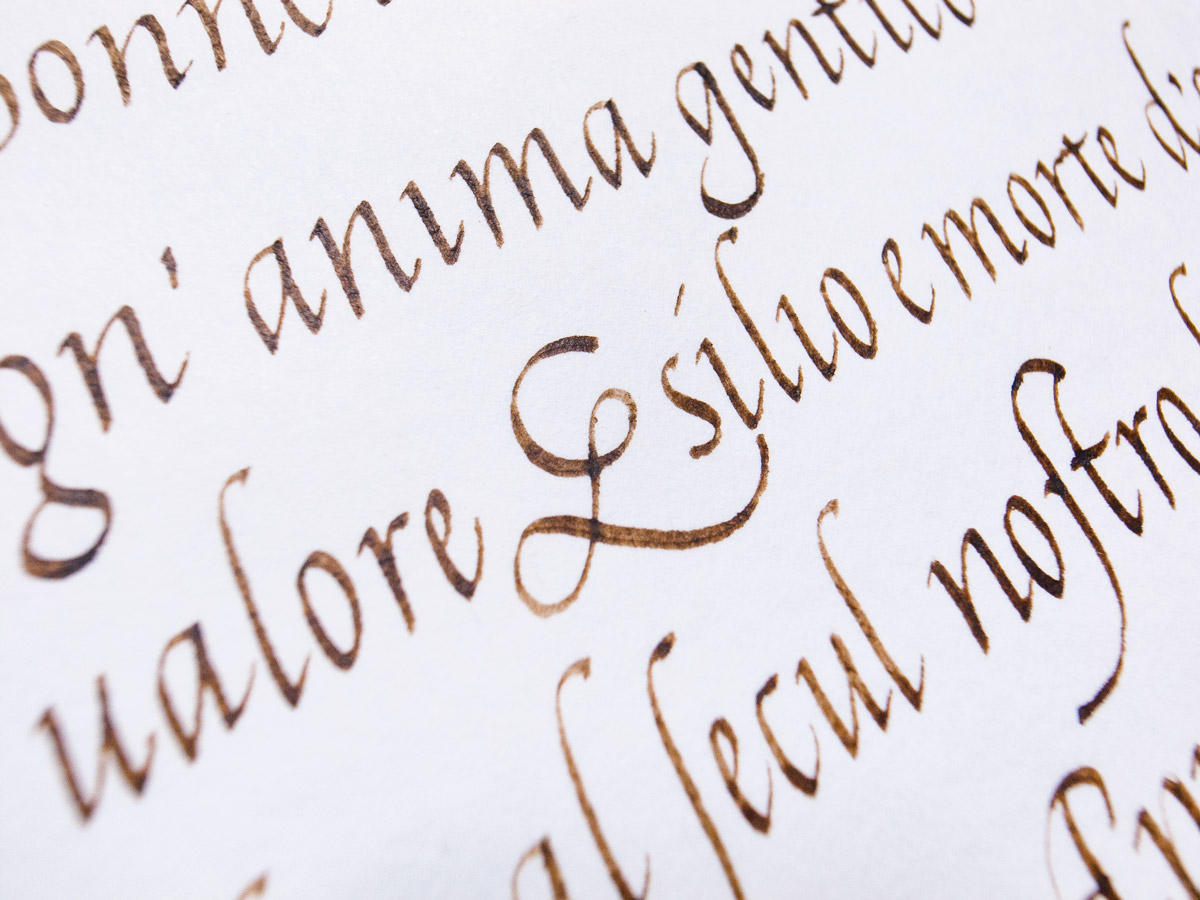 gn' anima gentil
ualore Esilio e morte
al ſecul noſtro